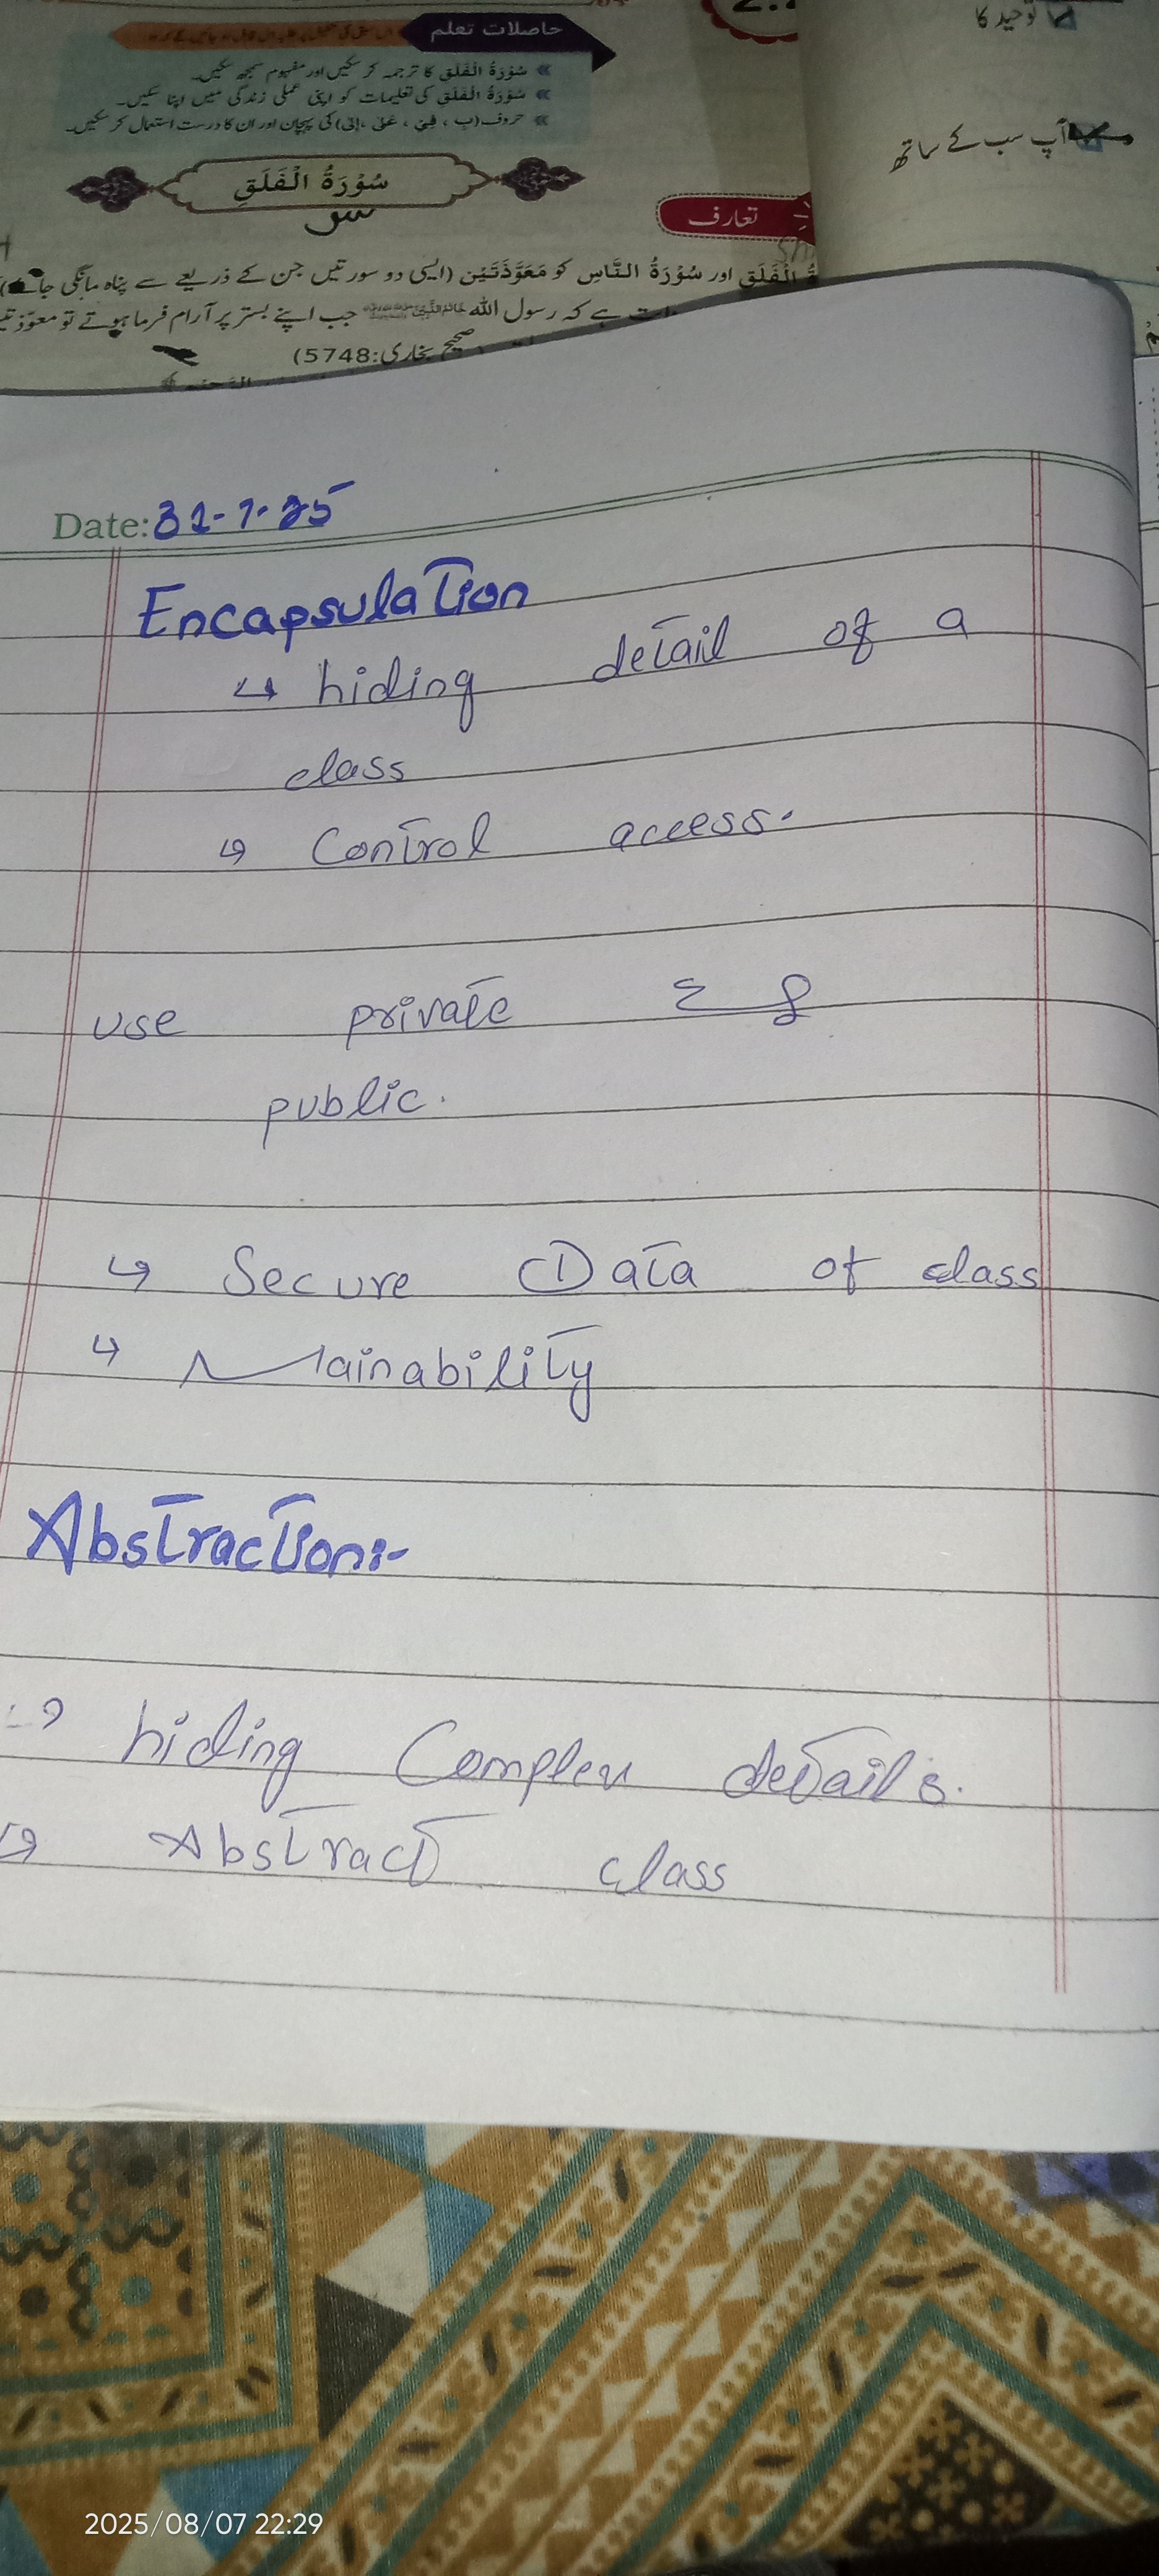 حاصلات تعلم
سُوْرَةُ الْفَلَق کا ترجمہ کر سکیں اور مفہوم سمجھ سکیں۔
سُوْرَةُ الْفَلَق کی تعلیمات کو اپنی عملی زندگی میں اپنا سکیں۔
حروف (بِ ، فِیْ ، عَلٰی ، اِلٰی) کی پہچان اور ان کا درست استعمال کر سکیں۔
توحید کا
آپ سب کے ساتھ
سُوْرَةُ الْفَلَقِ
تعارف
الْفَلَق اور سُوْرَةُ النَّاسِ کو مَعَوَّذَتَیْن (ایسی دو سورتیں جن کے ذریعے سے پناہ مانگی
ہے کہ رسول اللہ جب اپنے بستر پر آرام فرما ہوتے تو
صحیح بخاری:5748)
Date: 31-7-25
Encapsulation
↳ hiding detail of a
class
↳ Control access.
use private
public.
↳ Secure Data of class
↳ Mainability
Abstraction:-
hiding Complex details.
↳ Abstract class
2025/08/07 22:29